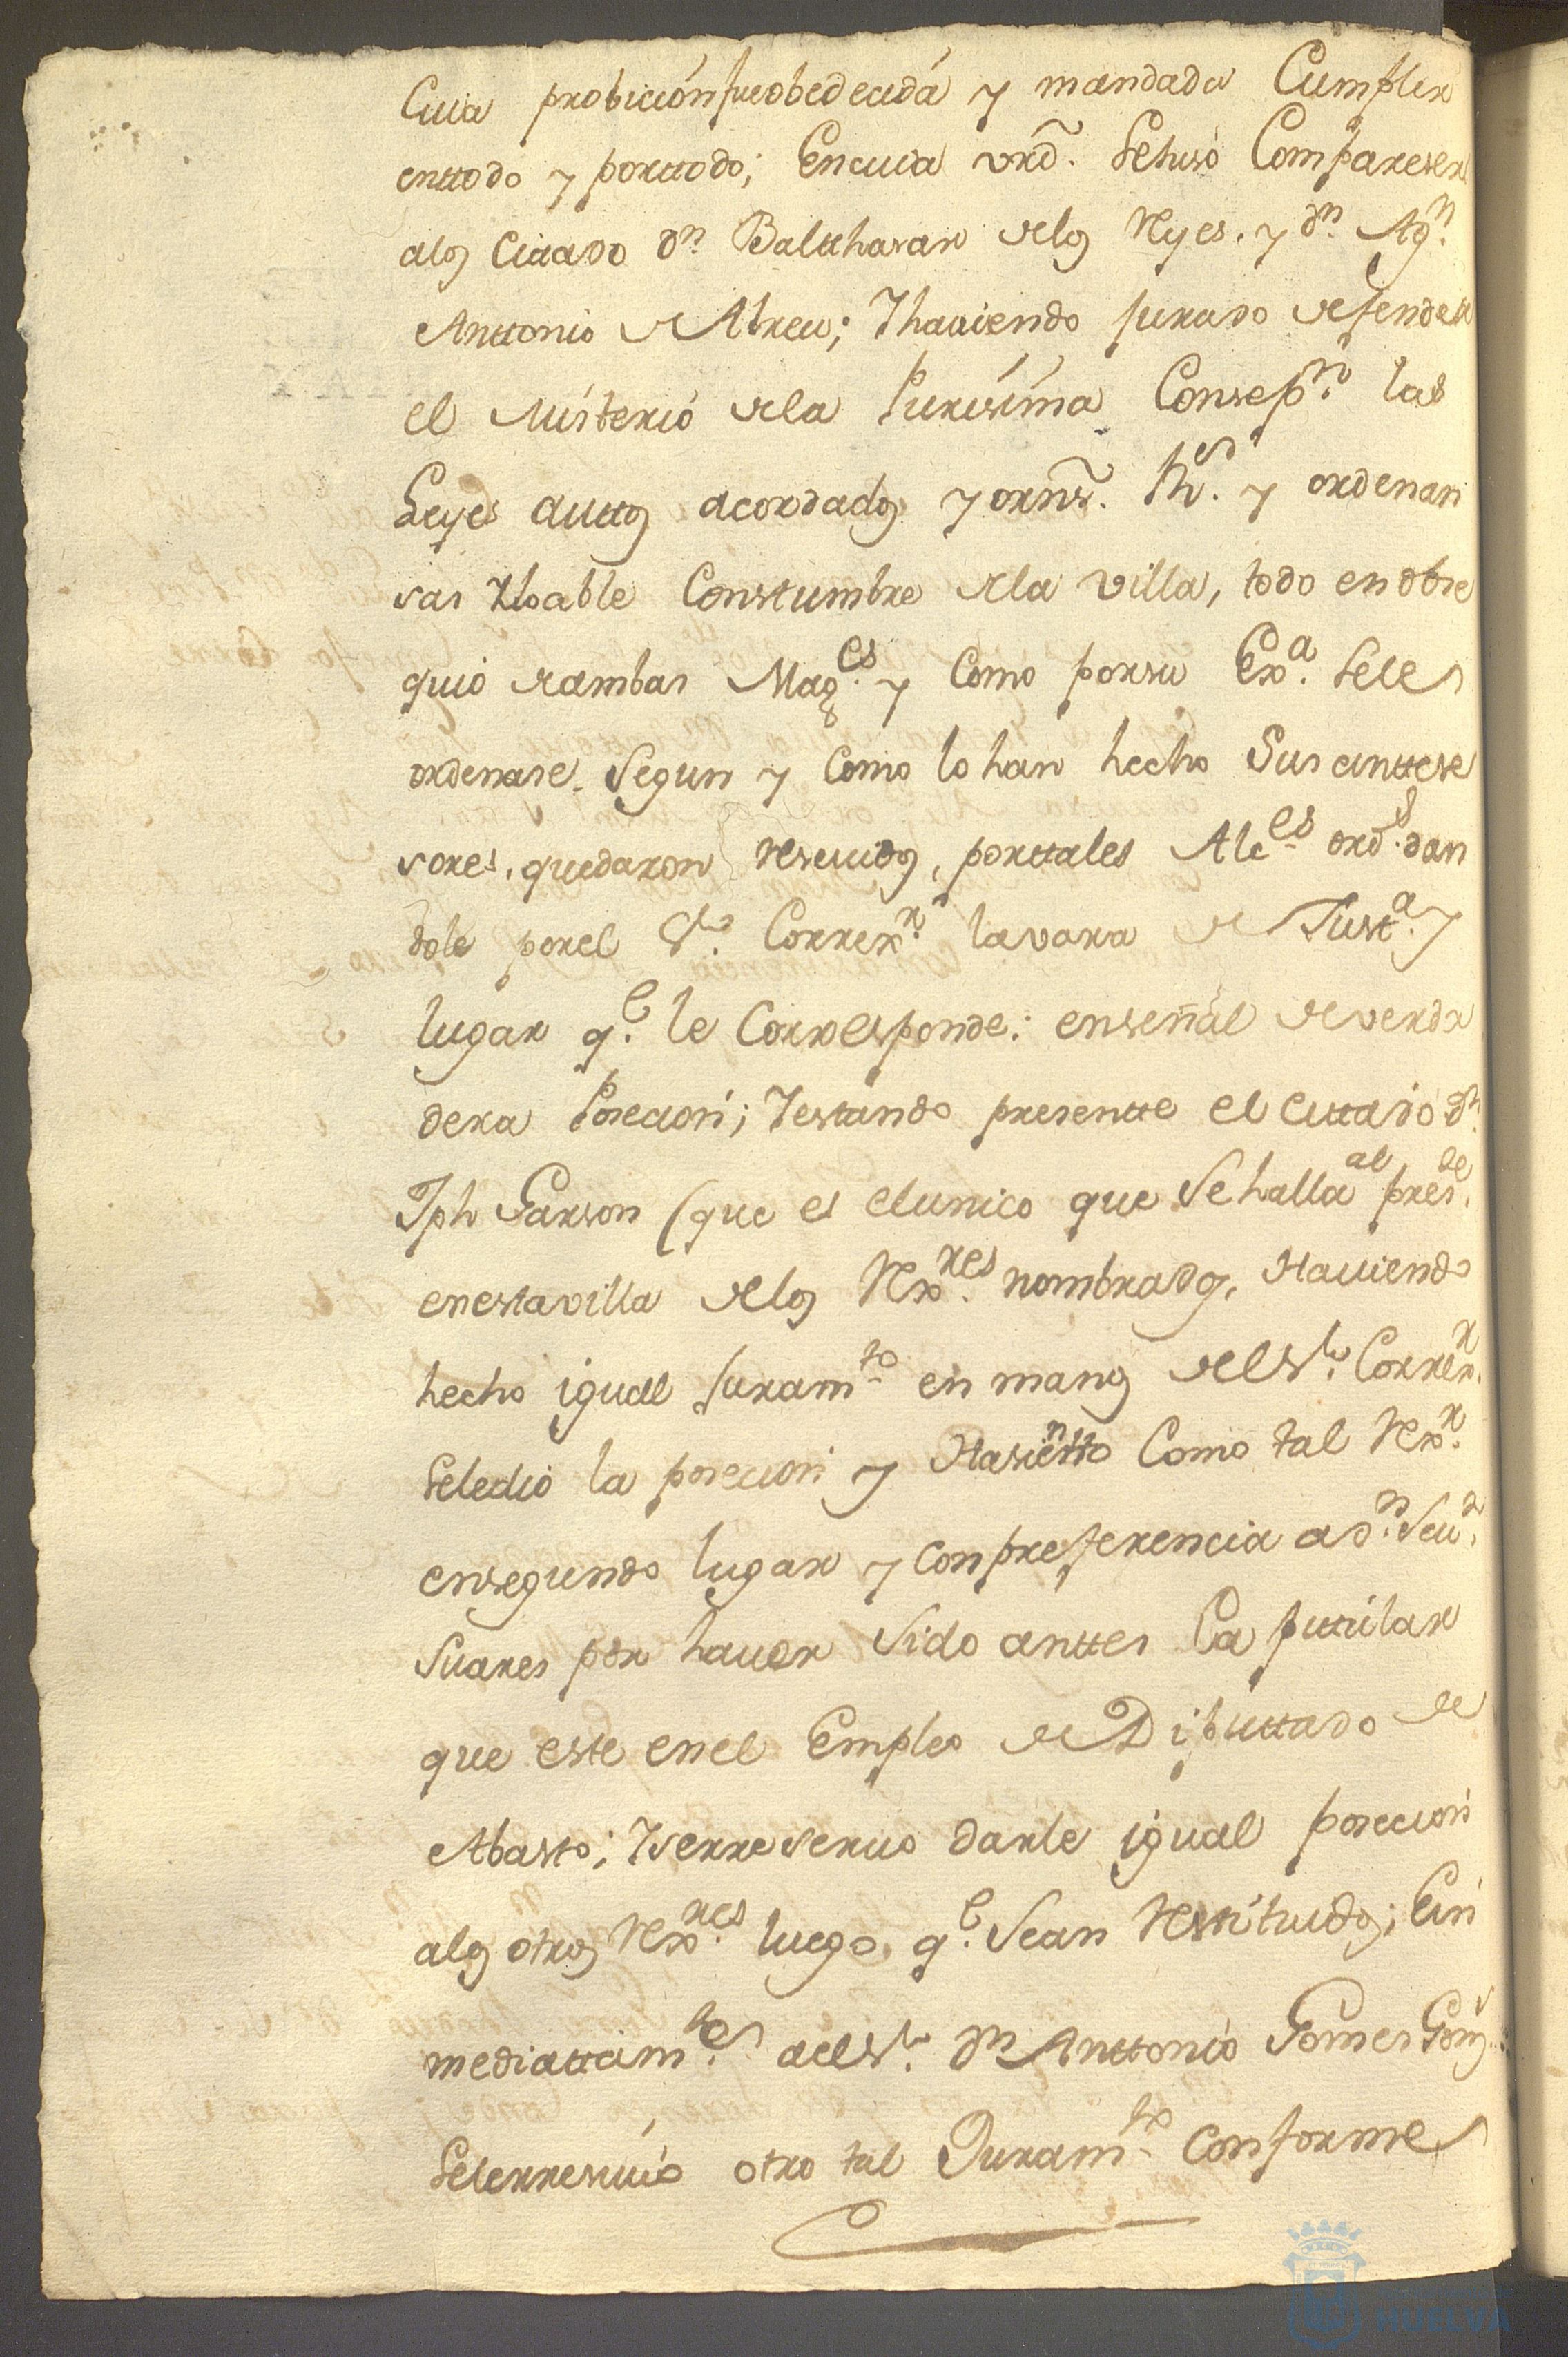 Cuia probición fue obedecida y mandada Cumplir
enttodo y porttodo; Encuia vrd. Sehisó Compareser
alos Cittado Dn. Balthasar delos Reyes, y Dn. Agn.
Anttonio de Abreu; Thaviendo Jurado defender
el Misterio dela Purísima Consepn. las
Leyes auttos acordados y orns. Rs. y ordenan
sas Yloable Constumbre dela villa, todo en obse
quio de ambas Mages. y como por su Exa. Seles
ordenase. Segun y Como lo han hecho Sus anttese
sores, quedaron resevidos, porttales Alces. ords. dan
dole porel Sr. Correxr. lavara de Justa. y
lugar qe. le Corresponde: enseñal deverda
dera Posecion; Yestando presentte el cittado Dn.
Jph Garson (que es elunico que Sehalla al preste.
enestavilla delos Rexres. nombrados, Haviendo
hecho igual Juramto. en manos delSr. Correxr.
Seledio la posecion y Hasientto Como tal Rexr.
ensegundo lugar y conpreferencia a Dn. Seun.
Suares por haver Sido anttes Capitular
que este enel Empleo de Diputtado de
Abasto; Yserreservo darle igual posecion
alos otros Rexres. luego qe. Sean Restituidos; Ein
mediattamte. aelSr. Dn Anttonio Gomes Gom
Selerresivió otro tal Juramto. conforme
HUELVA